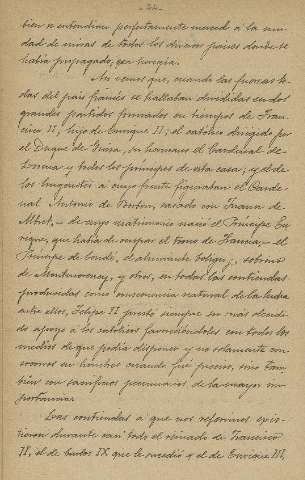 - 22 -
bien se entendian perfectamente merced á la uni-
dad de miras de todos los diversos paises donde se
habia propagado, esa heregia.
Asi vemos que, cuando las fuerzas to-
das del pais francés se hallaban divididas en dos
grandes partidos formados en tiempos de Fran-
cisco II, hijo de Enrique II; el católico dirigido por
el Duque de Guisa, su hermano el Cardenal de
Lorena y todos los principes de esta casa; y el de
los hugonotes á cuyo frente figuraban el Carde-
nal Antonio de Borbon, casado con Juana de
Albret, - de cuyo matrimonio nació el Principe En-
rique, que habia de ocupar el trono de Francia, - el
Principe de Condé, el almirante Coligny, sobrino
de Montmorency, y otros, en todas las contiendas
producidas como consecuencia natural de la lucha
entre ellos, Felipe II prestó siempre su más decidi-
do apoyo á los católicos favoreciéndoles con todos los
medios de que podia disponer y no solamente con
socorros en hombres cuando fué preciso, sino tam-
bien con sacrificios pecuniarios de la mayor im-
portancia.
Las contiendas á que nos referimos exis-
tieron durante casi todo el reinado de Francisco
II, el de Carlos IX que le sucedió y el de Enrique III,